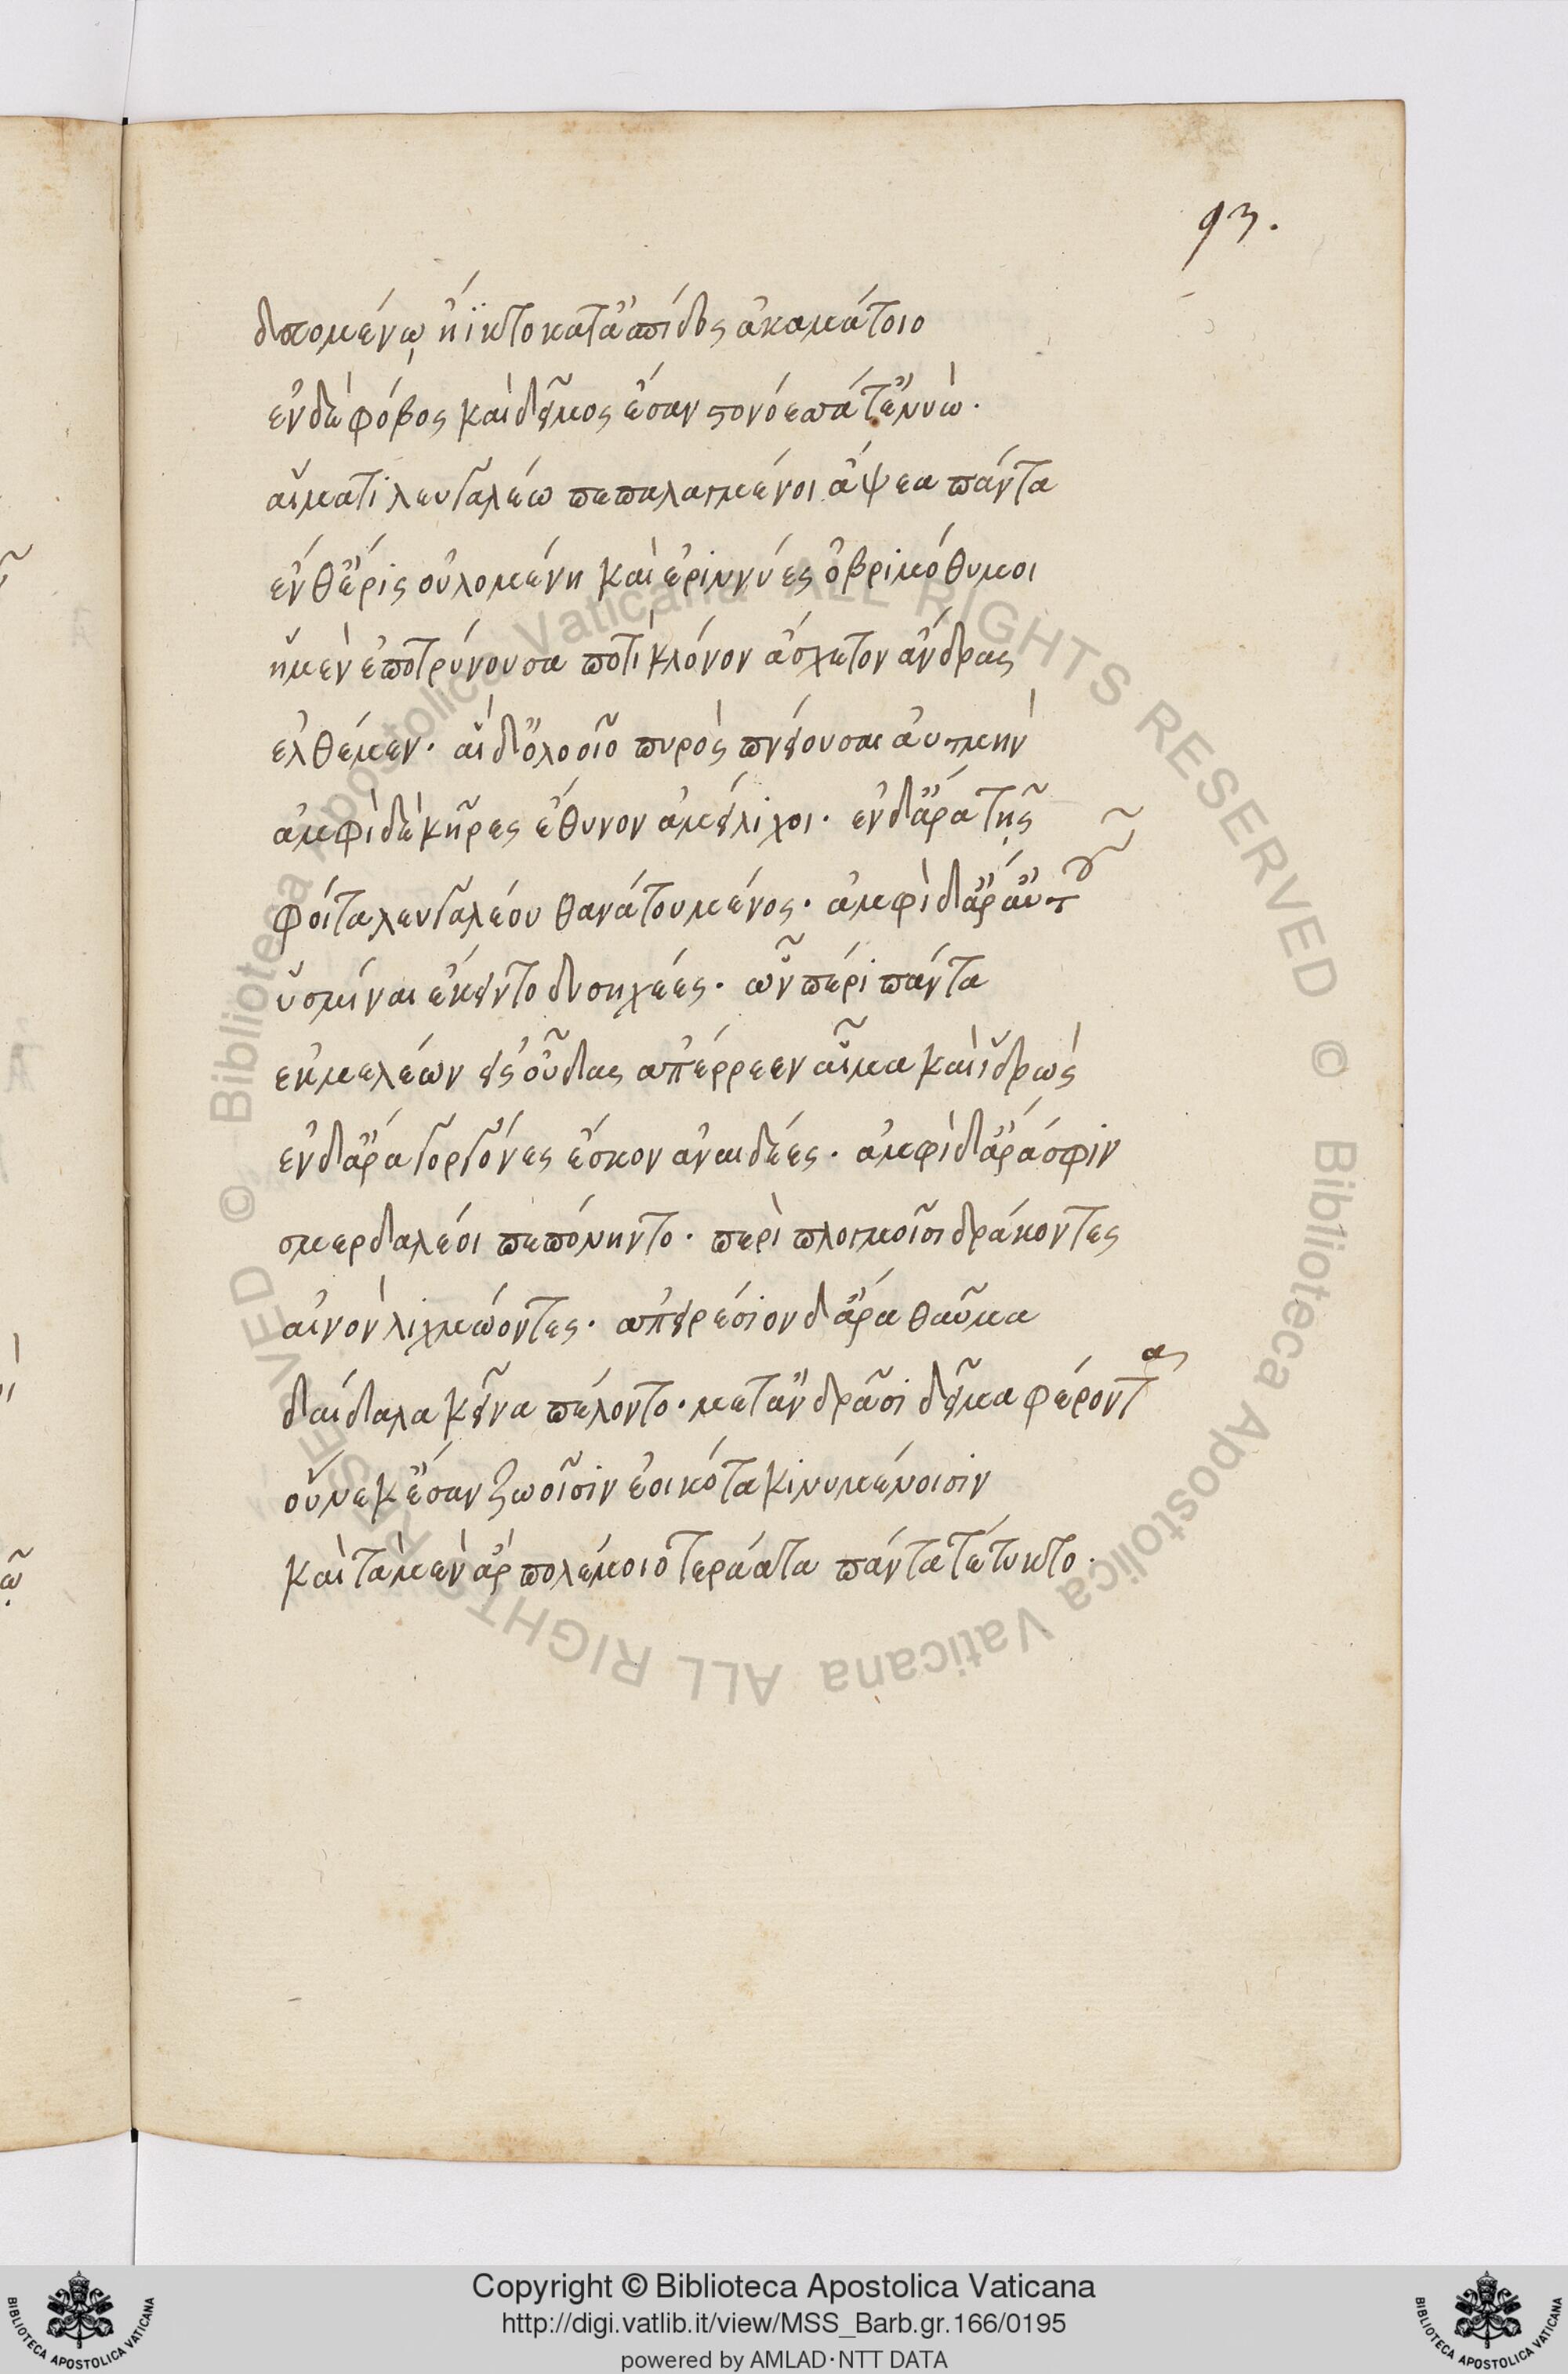 93.
δεπομένω ἤϊκτο κατ' ἀσπίδος ἀκαμάτοιο
ἐν δὲ φόβος καὶ δεῖμος ἔσαν στονόεσσά τ' ἐννυώ·
αἵματι λευγαλέω πεπαλαγμένοι ἅψεα πάντα
ἐν θ' ἔρις οὐλομένη καὶ ἐριννύες ὀβριμόθυμοι
ἡ μὲν ἐποτρύνουσα ποτὶ κλόνον ἄσχετον ἄνδρας
ἐλθέμεν· αἱ δ' ὀλοοῖο πυρὸς πνείουσαι ἀυτμὴν
ἀμφὶ δὲ κῆρες ἔθυνον ἀμείλιχοι· ἐν δ' ἄρα τῆς
φοίτα λευγαλέου θανάτου μένος· ἀμφὶ δ' ἄρ' αὐτῶ
ὑσμίναι ἐνείντο δυσηχέες· ὧν πέρι πάντα
ἐκ μελέων εἰς οὖδας ἀπέρρεεν αἷμα καὶ ἱδρὼς
ἐν δ' ἄρα γοργόνες ἔσκον ἀναιδέες· ἀμφὶ δ' ἄρα σφιν
σμερδαλέοι πεπόνηντο· περὶ πλοχμοῖσι δράκοντες
αἰνὸν λιχμώοντες· ἀπειρέσιον δ' ἄρα θαῦμα
δαίδαλα κεῖνα πέλοντο· μετ' ἀνδράσι δεῖμα φέροντας
οὕνεκ' ἔσαν ζωοῖσιν ἐοικότα κινυμένοισιν
καὶ τὰ μὲν ἂρ πολέμοιο τεράατα πάντα τέτυκτο·
Copyright © Biblioteca Apostolica Vaticana
http://digi.vatlib.it/view/MSS_Barb.gr.166/0195
powered by AMLAD·NTT DATA
© Biblioteca Apostolica Vaticana ALL RIGHTS RESERVED © Biblioteca Apostolica Vaticana ALL RIGHTS RESERVED
BIBLIOTECA APOSTOLICA VATICANA
BIBLIOTECA APOSTOLICA VATICANA